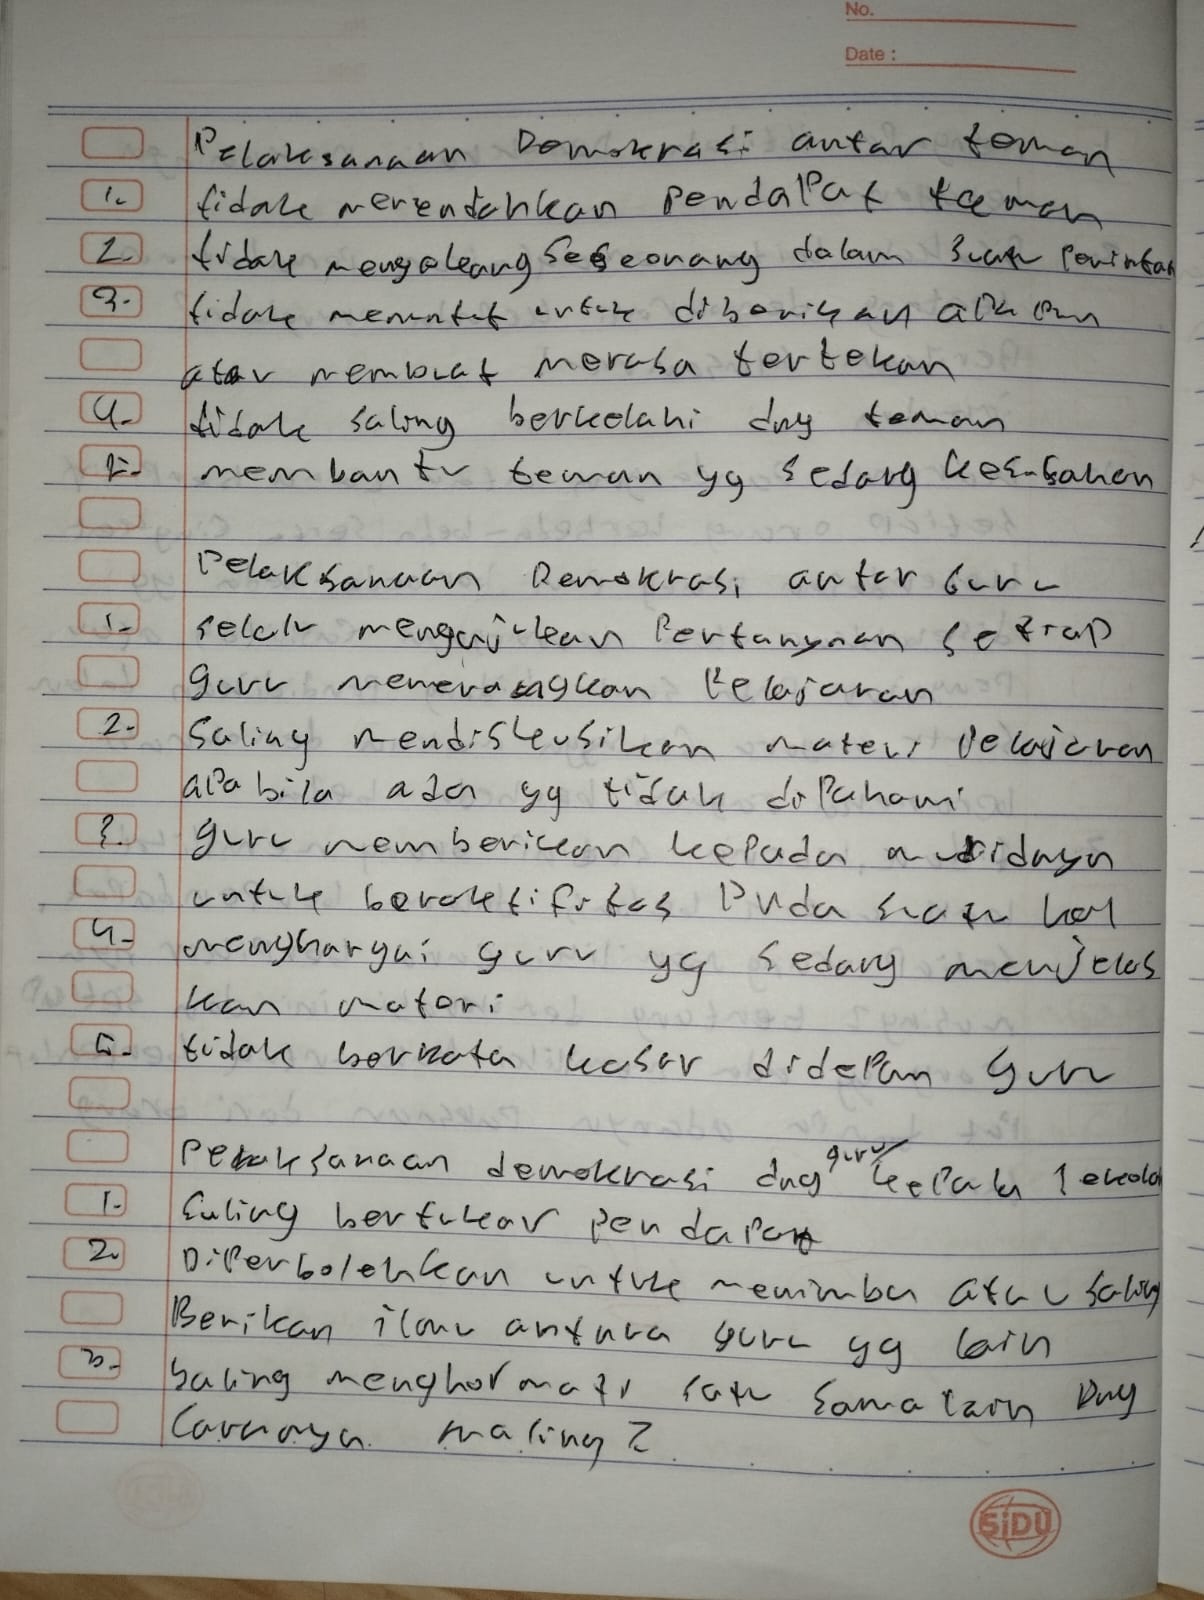 No.
Date :
Pelaksanaan Demokrasi antar teman
1. tidak merendahkan pendapat teman
2. tidak mengekang seseorang dalam suatu
3. tidak menuntut untuk diberikan apapun
atau membuat merasa tertekan
4. tidak saling berkelahi dng teman
5. membantu teman yg sedang kesusahan
Pelaksanaan Demokrasi antar Guru
1. selalu mengajukan Pertanyaan setiap
guru menerangkan Pelajaran
2. Saling mendiskusikan materi Pelajaran
apabila ada yg tidak dipahami
3. guru memberikan kepada muridnya
untuk beraktifitas Pada suatu hal
4. menghargai guru yg sedang menjelas
kan materi
5. tidak berkata kasar didepan guru
Pelaksanaan demokrasi dng guru kepala sekolah
1. Saling bertukar pendapat
2. Diperbolehkan untuk menimba atau saling
Berikan ilmu antara guru yg lain
3. Saling menghormati satu sama lain Dng
Caranya maling2
SIDU